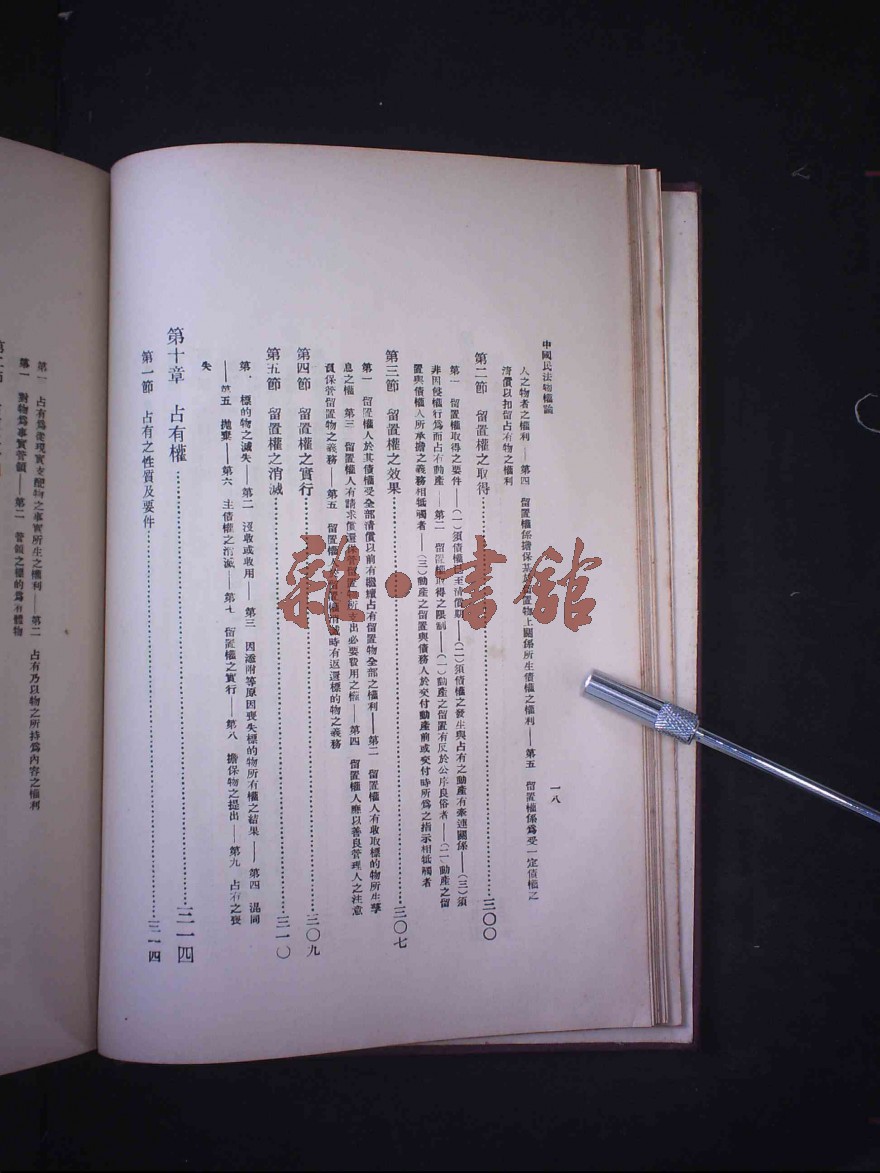 中國民法物權論
一八
人之物者之權利——第四　留置權係擔保基於留置物上關係所生債權之權利——第五　留置權係爲受一定債權之
清償以扣留占有物之權利
第二節　留置權之取得……三〇〇
第一　留置權取得之要件——（一）須債權已至清償期——（二）須債權之發生與占有之動產有牽連關係——（三）須
非因侵權行爲而占有動產——第二　留置權取得之限制——（一）動產之留置有反於公序良俗者——（二）動產之留
置與債權人所承擔之義務相牴觸者——（三）動產之留置與債務人於交付動產前或交付時所爲之指示相牴觸者
第三節　留置權之效果……三〇七
第一　留置權人於其債權受全部清償以前有繼續占有留置物全部之權利——第二　留置權人有收取標的物所生孳
息之權　第三　留置權人有請求償還保管留置物所支出必要費用之權——第四　留置權人應以善良管理人之注意
負保管留置物之義務——第五　留置權人於留置權消滅時有返還標的物之義務
第四節　留置權之實行……三〇九
第五節　留置權之消滅……三一〇
第一　標的物之滅失——第二　沒收或收用——第三　因添附等原因喪失標的物所有權之結果——第四　混同
——第五　拋棄——第六　主債權之消滅——第七　留置權之實行——第八　擔保物之提出——第九　占有之喪
失
第十章　占有權……三一四
第一節　占有之性質及要件……三一四
第一　占有爲從現實支配物之事實所生之權利——第二　占有乃以物之所持爲內容之權利
第一　對物爲事實管領——第二　管領之標的爲有體物
雜·書館